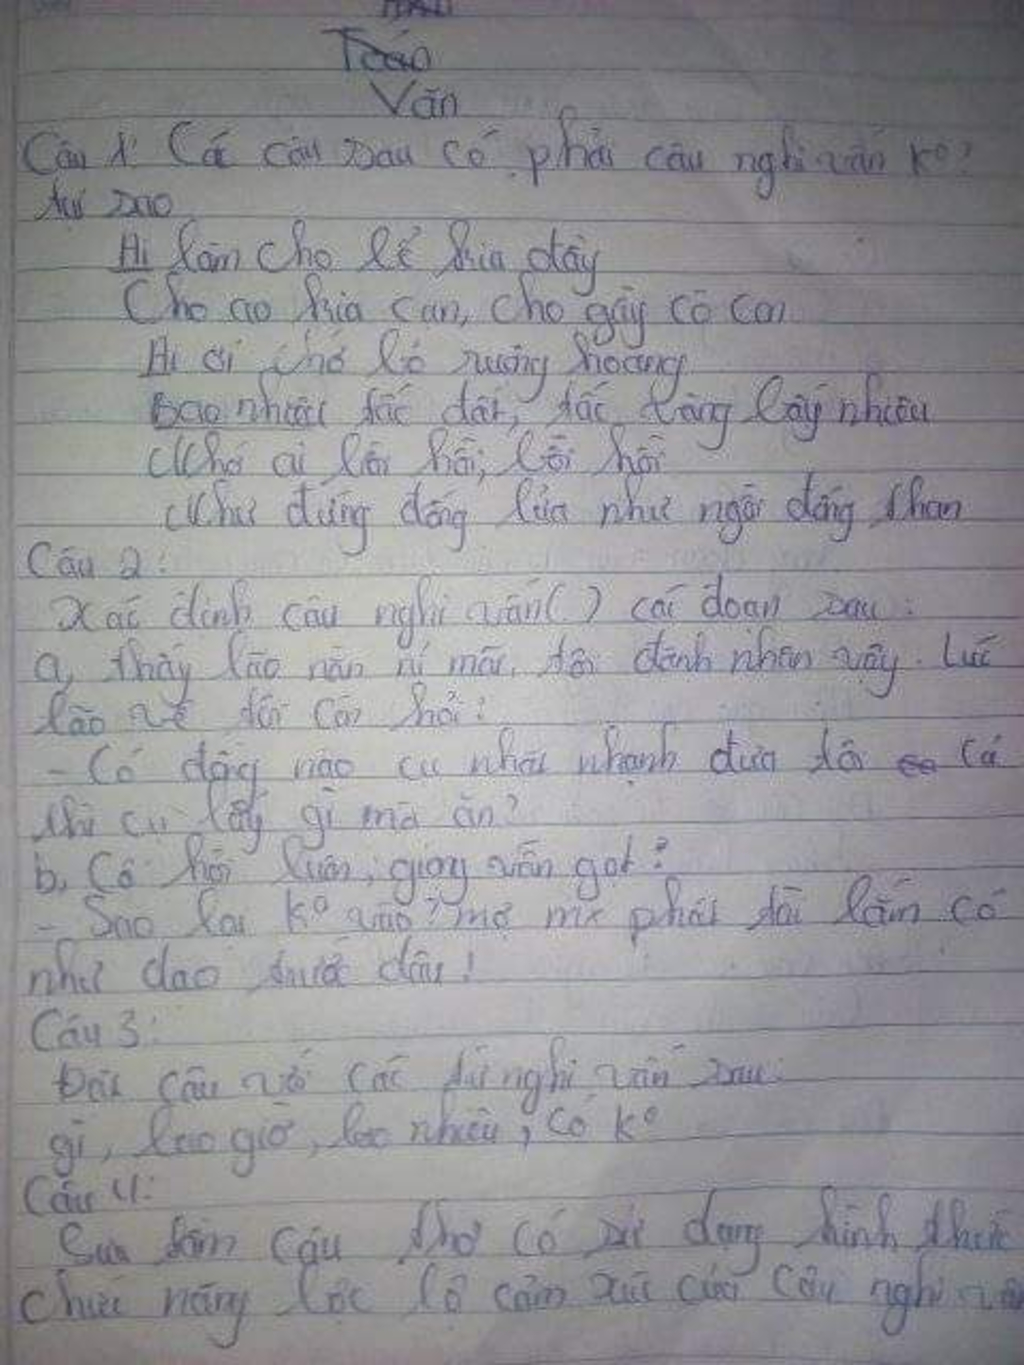 Toán
Văn
Câu 1: Cá câu sau có phải câu nghi vấn kº?
tại sao
Ai làm cho bể kia đầy
Cho ao kia cạn, cho gầy cò con
Ai ơi chớ bỏ ruộng hoang
Bao nhiêu tấc đất, tấc vàng bấy nhiêu
Nhớ ai bồi hồi, bồi hồi
Như đứng đống lửa như ngồi đống than
Câu 2:
Xác định câu nghi vấn ( ) cá đoạn sau:
a, thấy lão nằn nì mãi, tôi đành nhận vậy. Lúc
lão về tôi còn hỏi:
- Có đồng nào cụ nhặt nhạnh đưa tôi cả
thì cụ lấy gì mà ăn?
b, Cô hỏi luôn, giọng vẫn ngọt:
- Sao lại kº vào? mợ mx phát tài lắm có
như dạo trước đâu!
Câu 3:
Đặt câu với các từ nghi vấn sau:
gì, bao giờ, bao nhiêu, có kº
Câu 4:
Sưu tầm câu thơ có sử dụng hình thức
chức năng bộc lộ cảm xúc của câu nghi vấn